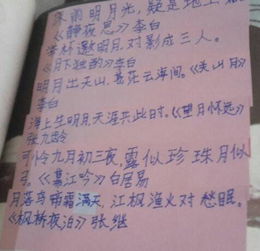 明月光,疑是地上
《静夜思》李白
邀明月,对影成三人。
《月下独酌》李白
明月出天山,苍茫云海间。《关山月》
李白
海上生明月,天涯共此时。《望月怀远》
张九龄
可怜九月初三夜,露似珍珠月似
弓。《暮江吟》白居易
月落乌啼霜满天,江枫渔火对愁眠。
《枫桥夜泊》张继